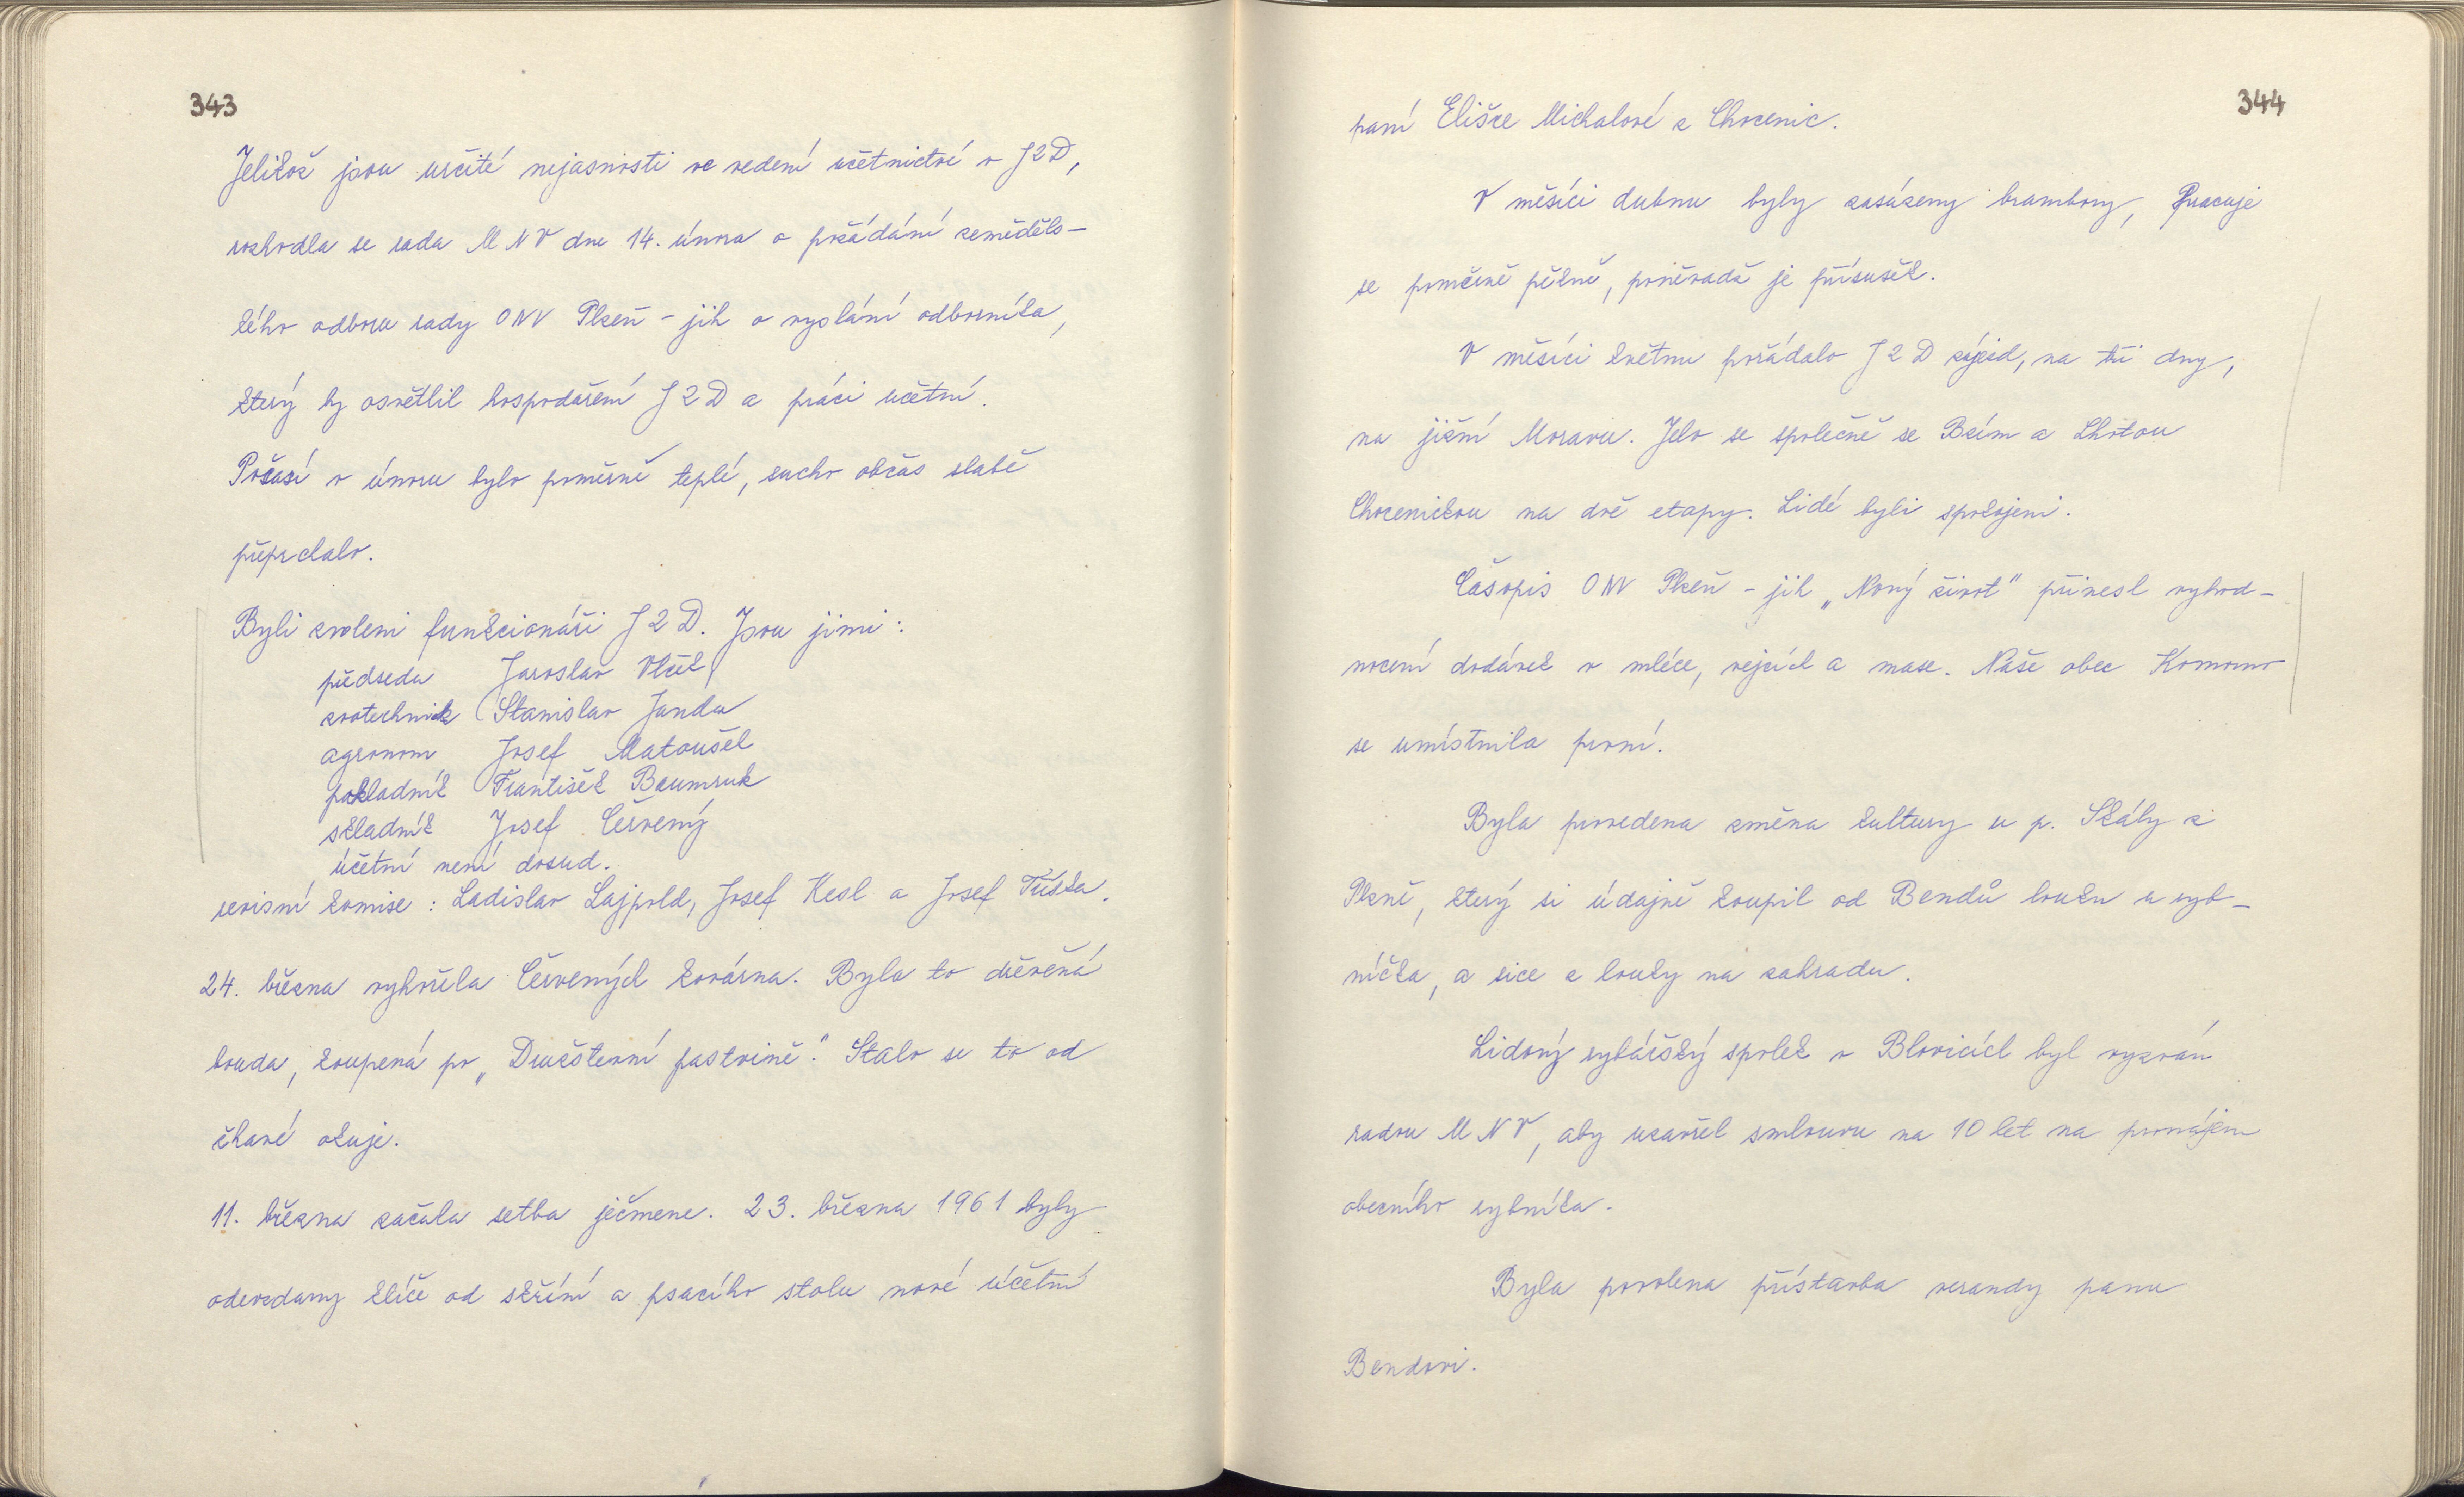 343
Jelikož jsou určité nejasnosti ve vedení účetnictví v JZD,
rozhodla se rada MNV dne 14. února o požádání zeměděls-
kého odboru rady ONV Plzeň - jih o vyslání odborníka,
který by osvětlil hospodaření JZD a práci účetní.
Počasí v únoru bylo poměrně teplé, sucho občas slabě
přeprchalo.
Byli zvoleni funkcionáři JZD. Jsou jimi:
předseda Jaroslav Vlček
zootechnik Stanislav Janda
agronom Josef Matoušek
pokladník František Baumruk
skladník Josef Červený
účetní není dosud.
revisní komise: Ladislav Lajpold, Josef Kesl a Josef Trůska.
24. března vyhořela Červených kovárna. Byla to dřevěná
bouda, koupená po „Družstevní pastvině". Stalo se to od
žhavé okuje.
11. března začala setba ječmene. 23. března 1961 byly
odevzdány klíče od skříní a psacího stolu nové účetní
344
paní Elišce Michalové z Chocenic.
V měsíci dubnu byly zasázeny brambory, Pracuje
se poměrně pěkně, poněvadž je přísušek.
V měsíci květnu pořádalo JZD zájezd, na tři dny,
na jižní Moravu. Jelo se společně se Bzím a Lhotou
Chocenickou na dvě etapy. Lidé byli spokojeni.
Časopis ONV Plzeň - jih „Nový život" přinesl vyhod-
nocení dodávek v mléce, vejcích a mase. Naše obec Komorno
se umístnila první.
Byla provedena změna kultury u p. Skály z
Plzně, který si údajně koupil od Bendů louku u ryb-
níčka, a sice z louky na zahradu.
Lidový rybářský spolek v Blovicích byl vyzván
radou MNV, aby uzavřel smlouvu na 10 let na pronájem
obecního rybníka.
Byla povolena přístavba verandy panu
Bendovi.